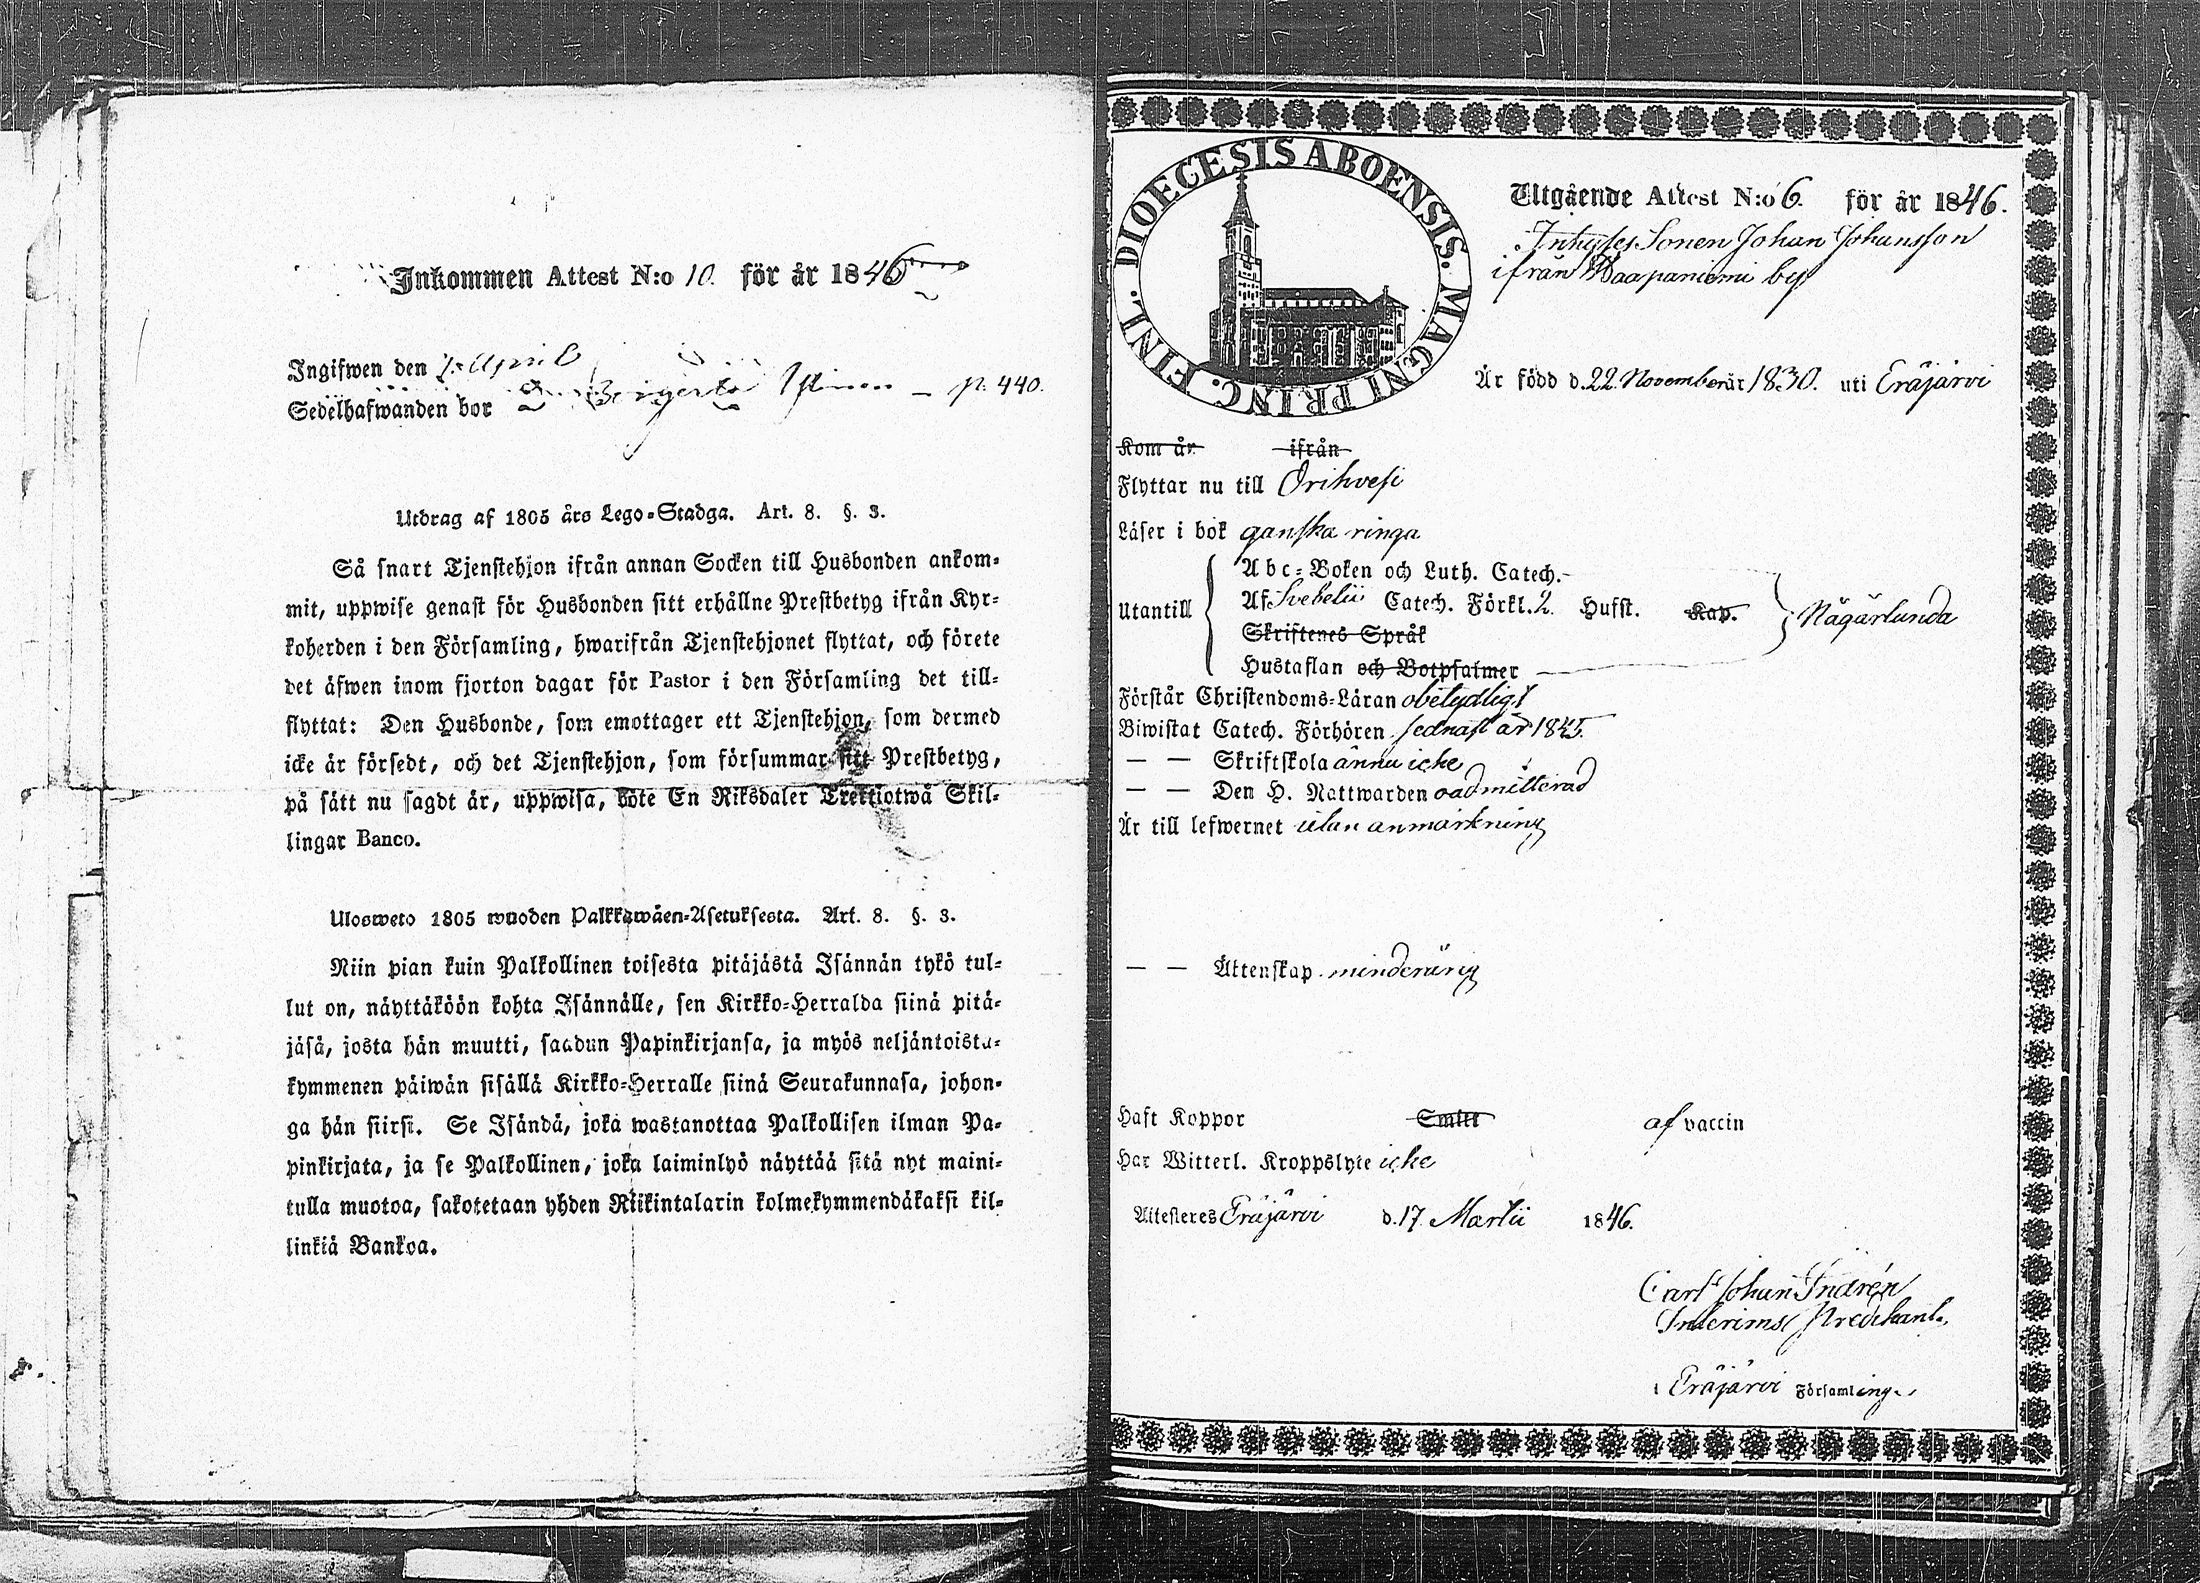 Inkommen Attest N:o 10. för år 1846
Ingifwen den April
Sedelhafwanden bor p. 440.
Utdrag af 1805 års Lego-Stadga. Art. 8. §. 3.
Så snart Tjenstehjon ifrån annan Socken till Husbonden ankom-
mit, uppwise genast för Husbonden sitt erhållne Prestbetyg ifrån Kyr-
koherden i den Församling, hwarifrån Tjenstehjonet flyttat, och förete
det äfwen inom fjorton dagar för Pastor i den Församling det till-
flyttat: Den Husbonde, som emottager ett Tjenstehjon, som dermed
icke är försedt, och det Tjenstehjon, som försummar sitt Prestbetyg,
på sätt nu sagdt är, uppwisa, böte En Riksdaler Trettiotwå Skil-
lingar Banco.
Ulosweto 1805 wuoden Palkkawäen-Asetuksesta. Art. 8. §. 3.
Niin pian kuin Palkollinen toisesta pitäjästä Isännän tykö tul-
lut on, näyttäköön kohta Isännälle, sen Kirkko-Herralda siinä pitä-
jäsä, josta hän muutti, saadun Papinkirjansa, ja myös neljäntoista-
kymmenen päiwän sisällä Kirkko-Herralle siinä Seurakunnasa, johon-
ga hän siirsi. Se Isändä, joka wastanottaa Palkollisen ilman Pa-
pinkirjata, ja se Palkollinen, joka laiminlyö näyttää sitä nyt maini-
tulla muotoa, sakotetaan yhden Riikintalarin kolmekymmendäkaksi kil-
linkiä Bankoa.
DIOECESIS ABOENSIS. MAGNI PRINC. FINL.
Utgående Attest N:o 6. för år 1846.
Inhyses Sonen Johan Johansson
ifrån Haapaniemi by
Är född d. 22 November år 1830. uti Eräjärvi
Kom år ifrån
Flyttar nu till Orihvesi
Läser i bok ganska ringa
Abc-Boken och Luth. Catech.
Utantill Af Svebelii Catech. Förkl. 2. Hufst. Kap. Någårlunda
Skriftenes Språk
Hustaflan och Botpsalmer
Förstår Christendoms-Läran obetydligt
Biwistat Catech. Förhören sednast år 1845.
— — Skriftskola ännu icke
— — Den H. Nattwarden oadmitterad
Är till lefwernet utan anmärkning
— — Ättenskap minderårig
Haft Koppor Smitt af vaccin
Har Witterl. Kroppslyte icke
Attesteres Eräjärvi d. 17. Martii 1846.
Carl Johan Indrén
Interims Predikant.
i Eräjärvi Församling.